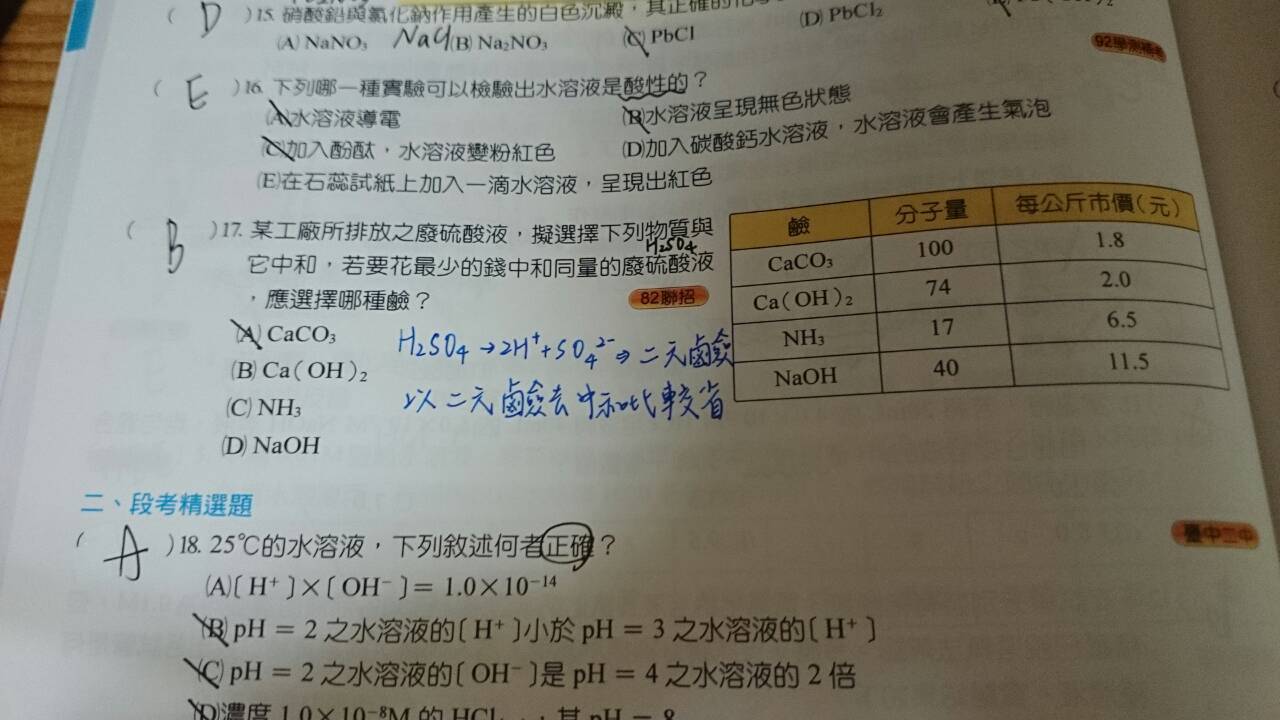 ( D )15. 硝酸鉛與氯化鈉作用產生的白色沉澱，其正確的化學
(A) NaNO₃ NaCl (B) Na₂NO₃ (C) PbCl (D) PbCl₂
92學測補考
( E )16. 下列哪一種實驗可以檢驗出水溶液是酸性的？
(A)水溶液導電 (B)水溶液呈現無色狀態
(C)加入酚酞，水溶液變粉紅色 (D)加入碳酸鈣水溶液，水溶液會產生氣泡
(E)在石蕊試紙上加入一滴水溶液，呈現出紅色
( B )17. 某工廠所排放之廢硫酸液，擬選擇下列物質與
H₂SO₄
它中和，若要花最少的錢中和同量的廢硫酸液
，應選擇哪種鹼？ 82聯招
(A) CaCO₃
(B) Ca(OH)₂
(C) NH₃
(D) NaOH
H₂SO₄→2H⁺+SO₄²⁻⇒二元鹼
以二元鹼去中和比較省
鹼 分子量 每公斤市價(元)
CaCO₃ 100 1.8
Ca(OH)₂ 74 2.0
NH₃ 17 6.5
NaOH 40 11.5
二、段考精選題
( A )18. 25℃的水溶液，下列敘述何者正確？ 臺中二中
(A)〔H⁺〕×〔OH⁻〕= 1.0×10⁻¹⁴
(B) pH = 2 之水溶液的〔H⁺〕小於 pH = 3 之水溶液的〔H⁺〕
(C) pH = 2 之水溶液的〔OH⁻〕是 pH = 4 之水溶液的 2 倍
(D)濃度 1.0×10⁻⁸M 的 HCl，其 pH = 8